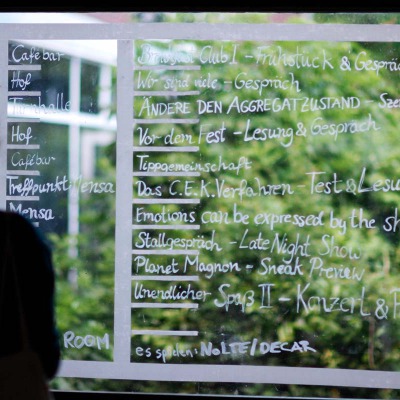 Cafébar
Breakfast Club I - Frühstück & Gespräc
Hof
Wir sind viele - Gespräch
Turnhalle
ÄNDERE DEN AGGREGATZUSTAND - Sze
Hof
Vor dem Fest - Lesung & Gespräch
Cafébar
Tippgemeinschaft
Treffpunkt: Mensa
Das C.E.K. Verfahren - Test & Lesu
Mensa
Emotions can be expressed by the sh
Stallgespräch - Late Night Show
Planet Magnon - Sneak Preview
Unendlicher Spaß II - Konzert & P
ROOM
es spielen: NOLTE/DECAR